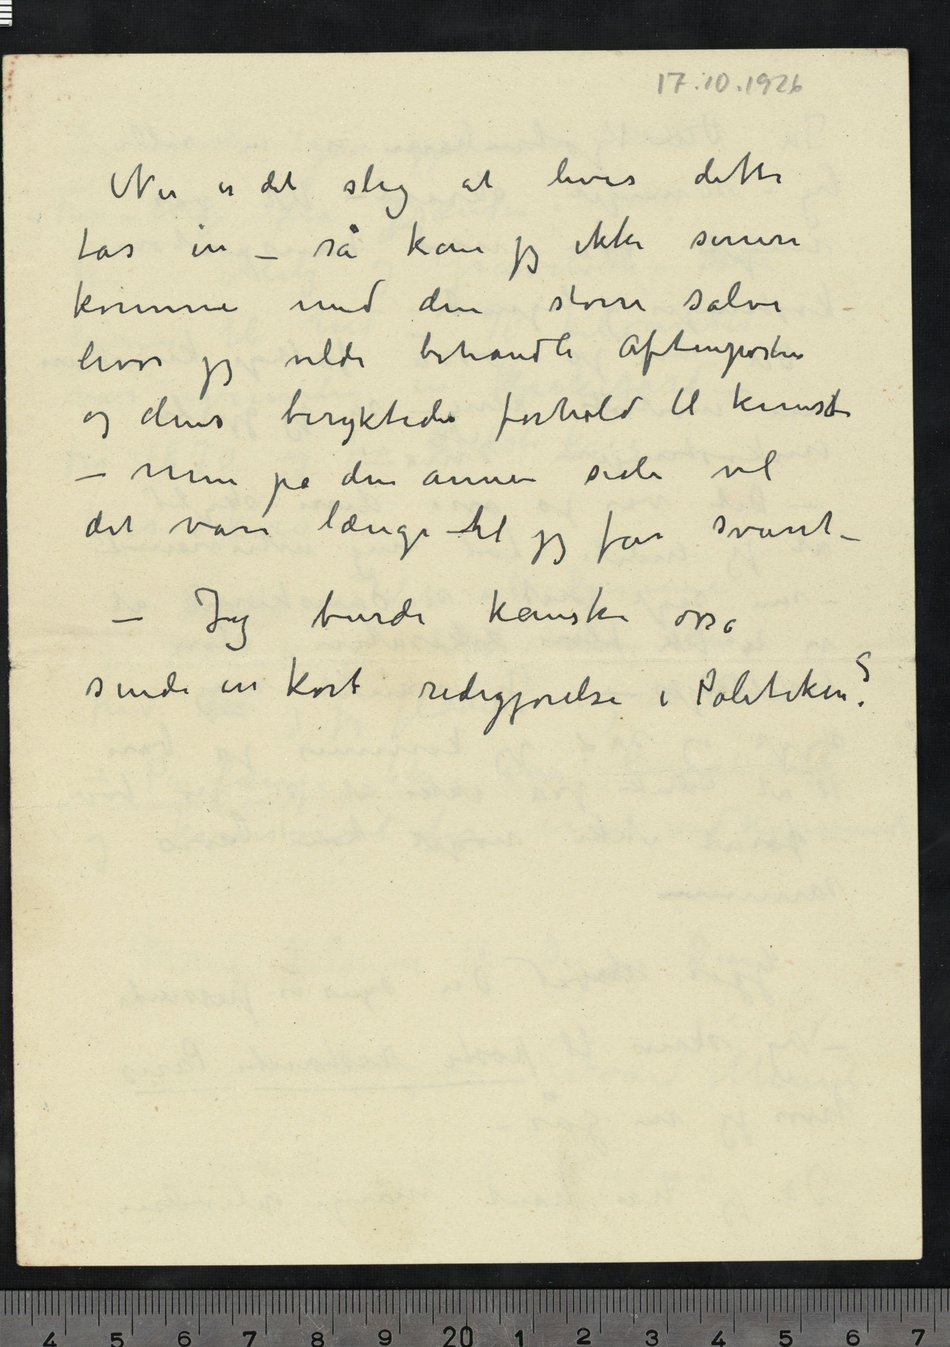 17.10.1926
Nu er det slig at hvis dette
tas in – så kan jeg ikke senere
komme med den større salve
hvor jeg vilde behandle Aftenposten
og dens beryktede forhold til kunst
– men på den annen side vil
det vare længe til jeg får svart –
– Jeg burde kanske osså
sende en kort redegjørelse i Politiken?
4 5 6 7 8 9 20 1 2 3 4 5 6 7